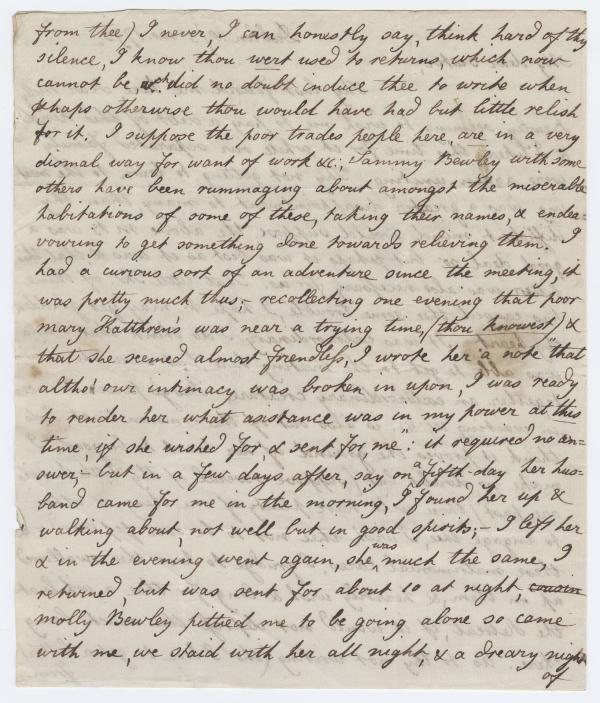 from thee) I never, I can honestly say, think hard of thy
silence, I know thou wert used to returns, which now
cannot be, wch did no doubt induce thee to write when
perhaps otherwise thou would have had but little relish
for it. I suppose the poor trades people here, are in a very
dismal way for want of work &c:, Sammy Bewley with some
others have been rummaging about amongst the miserable
habitations of some of these, taking their names, & endea=
vowring to get something done towards relieving them. I
had a curious sort of an adventure since the meeting, it
was pretty much thus;- recollecting one evening that poor
mary Katthren's was near a trying time, (thou knowest) &
that she seemed almost friendless, I wrote her a note "that
altho' owr intimacy was broken in upon, I was ready
to render her what asistance was in my power at this
time, if she wished for, & sent for me": it required no an-
swer;- but in a few days after, say on a fifth-day her hus=
band came for me in the morning, I found her up &
walking about, not well but in good spirits;- I left her
& in the evening went again, she was much the same, I
returned, but was sent for about 10 at night, cousin
molly Bewley pittied me to be going alone so came
with me, we staid with her all night, & a dreary night
of